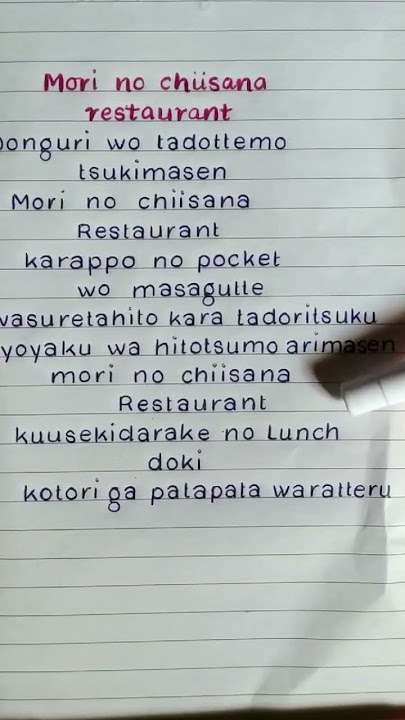 Mori no chiisana
restaurant
Donguri wo tadottemo
tsukimasen
Mori no chiisana
Restaurant
karappo no pocket
wo masagutte
wasuretahito kara tadoritsuku
yoyaku wa hitotsumo arimasen
mori no chiisana
Restaurant
kuusekidarake no Lunch
doki
kotori ga patapata waratteru